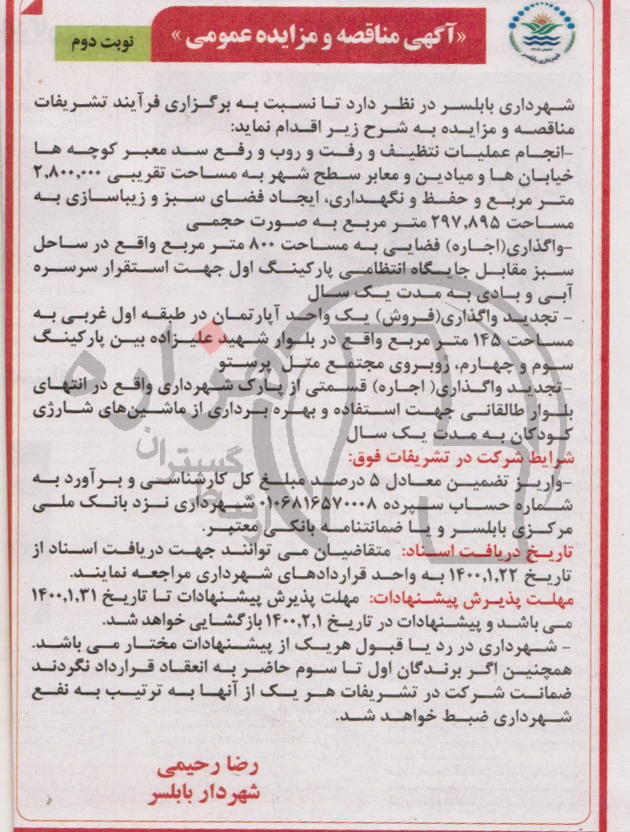 «آگهی مناقصه و مزایده عمومی»
نوبت دوم
شهرداری بابلسر
شهرداری بابلسر در نظر دارد تا نسبت به برگزاری فرآیند تشریفات
مناقصه و مزایده به شرح زیر اقدام نماید:
-انجام عملیات نتظیف و رفت و روب و رفع سد معبر کوچه ها
خیابان ها و میادین و معابر سطح شهر به مساحت تقریبی ۲,۸۰۰,۰۰۰
متر مربع و حفظ و نگهداری، ایجاد فضای سبز و زیباسازی به
مساحت ۲۹۷,۸۹۵ متر مربع به صورت حجمی
-واگذاری(اجاره) فضایی به مساحت ۸۰۰ متر مربع واقع در ساحل
سبز مقابل جایگاه انتظامی پارکینگ اول جهت استقرار سرسره
آبی و بادی به مدت یک سال
- تجدید واگذاری(فروش) یک واحد آپارتمان در طبقه اول غربی به
مساحت ۱۴۵ متر مربع واقع در بلوار شهید علیزاده بین پارکینگ
سوم و چهارم، روبروی مجتمع متل پرستو
-تجدید واگذاری( اجاره) قسمتی از پارک شهرداری واقع در انتهای
بلوار طالقانی جهت استفاده و بهره برداری از ماشین‌های شارژی
کودکان به مدت یک سال
شرایط شرکت در تشریفات فوق:
-واریز تضمین معادل ۵ درصد مبلغ کل کارشناسی و برآورد به
شماره حساب سپرده ۰۱۰۶۸۱۶۵۷۰۰۰۸ شهرداری نزد بانک ملی
مرکزی بابلسر و یا ضمانتنامه بانکی معتبر.
تاریخ دریافت اسناد: متقاضیان می توانند جهت دریافت اسناد از
تاریخ ۱۴۰۰,۱,۲۲ به واحد قراردادهای شهرداری مراجعه نمایند.
مهلت پذیرش پیشنهادات: مهلت پذیرش پیشنهادات تا تاریخ ۱۴۰۰,۱,۳۱
می باشد و پیشنهادات در تاریخ ۱۴۰۰,۲,۱ بازگشایی خواهد شد.
- شهرداری در رد یا قبول هریک از پیشنهادات مختار می باشد.
همچنین اگر برندگان اول تا سوم حاضر به انعقاد قرارداد نگردند
ضمانت شرکت در تشریفات هر یک از آنها به ترتیب به نفع
شهرداری ضبط خواهد شد.
رضا رحیمی
شهردار بابلسر
هزاره
گستران